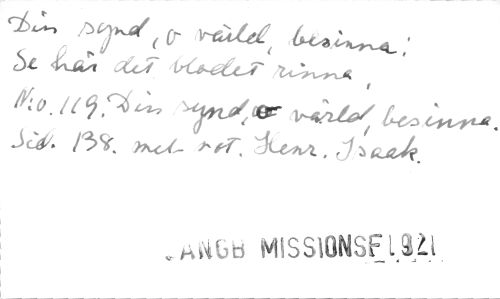 Din synd, o värld, besinna;
Se här det blodet rinna,
N:o. 119. Din synd, o värld, besinna.
Sid. 138. met not. Henr. Isaak.
ÅNGB MISSIONSF 1921